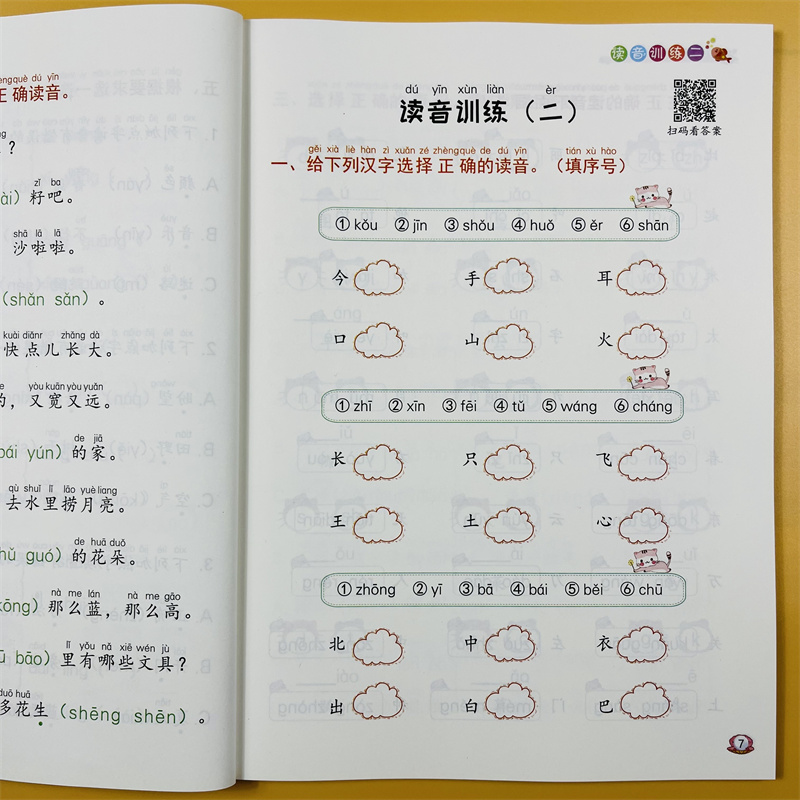 èngquè dú yīn
正确读音。
？
zǐ ba
ài）籽吧。
shā lā lā
沙啦啦。
（shǎn sǎn）。
kuài diǎnr zhǎng dà
快点儿长大。
yòu kuān yòu yuǎn
的，又宽又远。
de jiā
bái yún）的家。
qù shuǐ lǐ lāo yuè liang
去水里捞月亮。
de huā duǒ
hǔ guó）的花朵。
nà me lán， nà me gāo
kōng）那么蓝，那么高。
lǐ yǒu nǎ xiē wén jù
ū bāo）里有哪些文具？
duō huā
多花生（shēng shēn）。
读音训练二
dú yīn xùn liàn èr
读音训练（二）
扫码看答案
gěi xià liè hàn zì xuǎn zé zhèngquè de dú yīn tián xù hào
一、给下列汉字选择正确的读音。（填序号）
①kǒu ②jīn ③shǒu ④huǒ ⑤ěr ⑥shān
今 手 耳
口 山 火
①zhī ②xīn ③fēi ④tǔ ⑤wáng ⑥cháng
长 只 飞
王 土 心
①zhōng ②yī ③bā ④bái ⑤běi ⑥chū
北 中 衣
出 白 巴
7